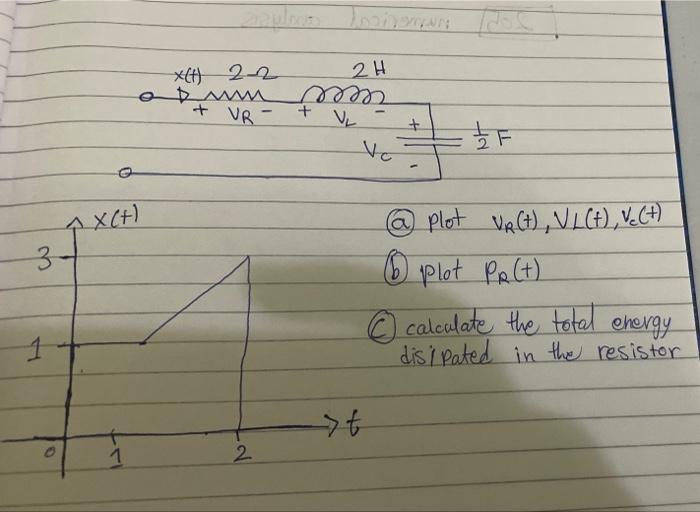 x(t) 2Ω 2H
+ VR - + VL -
+
Vc 1/2 F
-
x(t)
3
1
0 1 2 t
ⓐ plot VR(t), VL(t), Vc(t)
ⓑ plot PR(t)
ⓒ calculate the total energy
disipated in the resistor